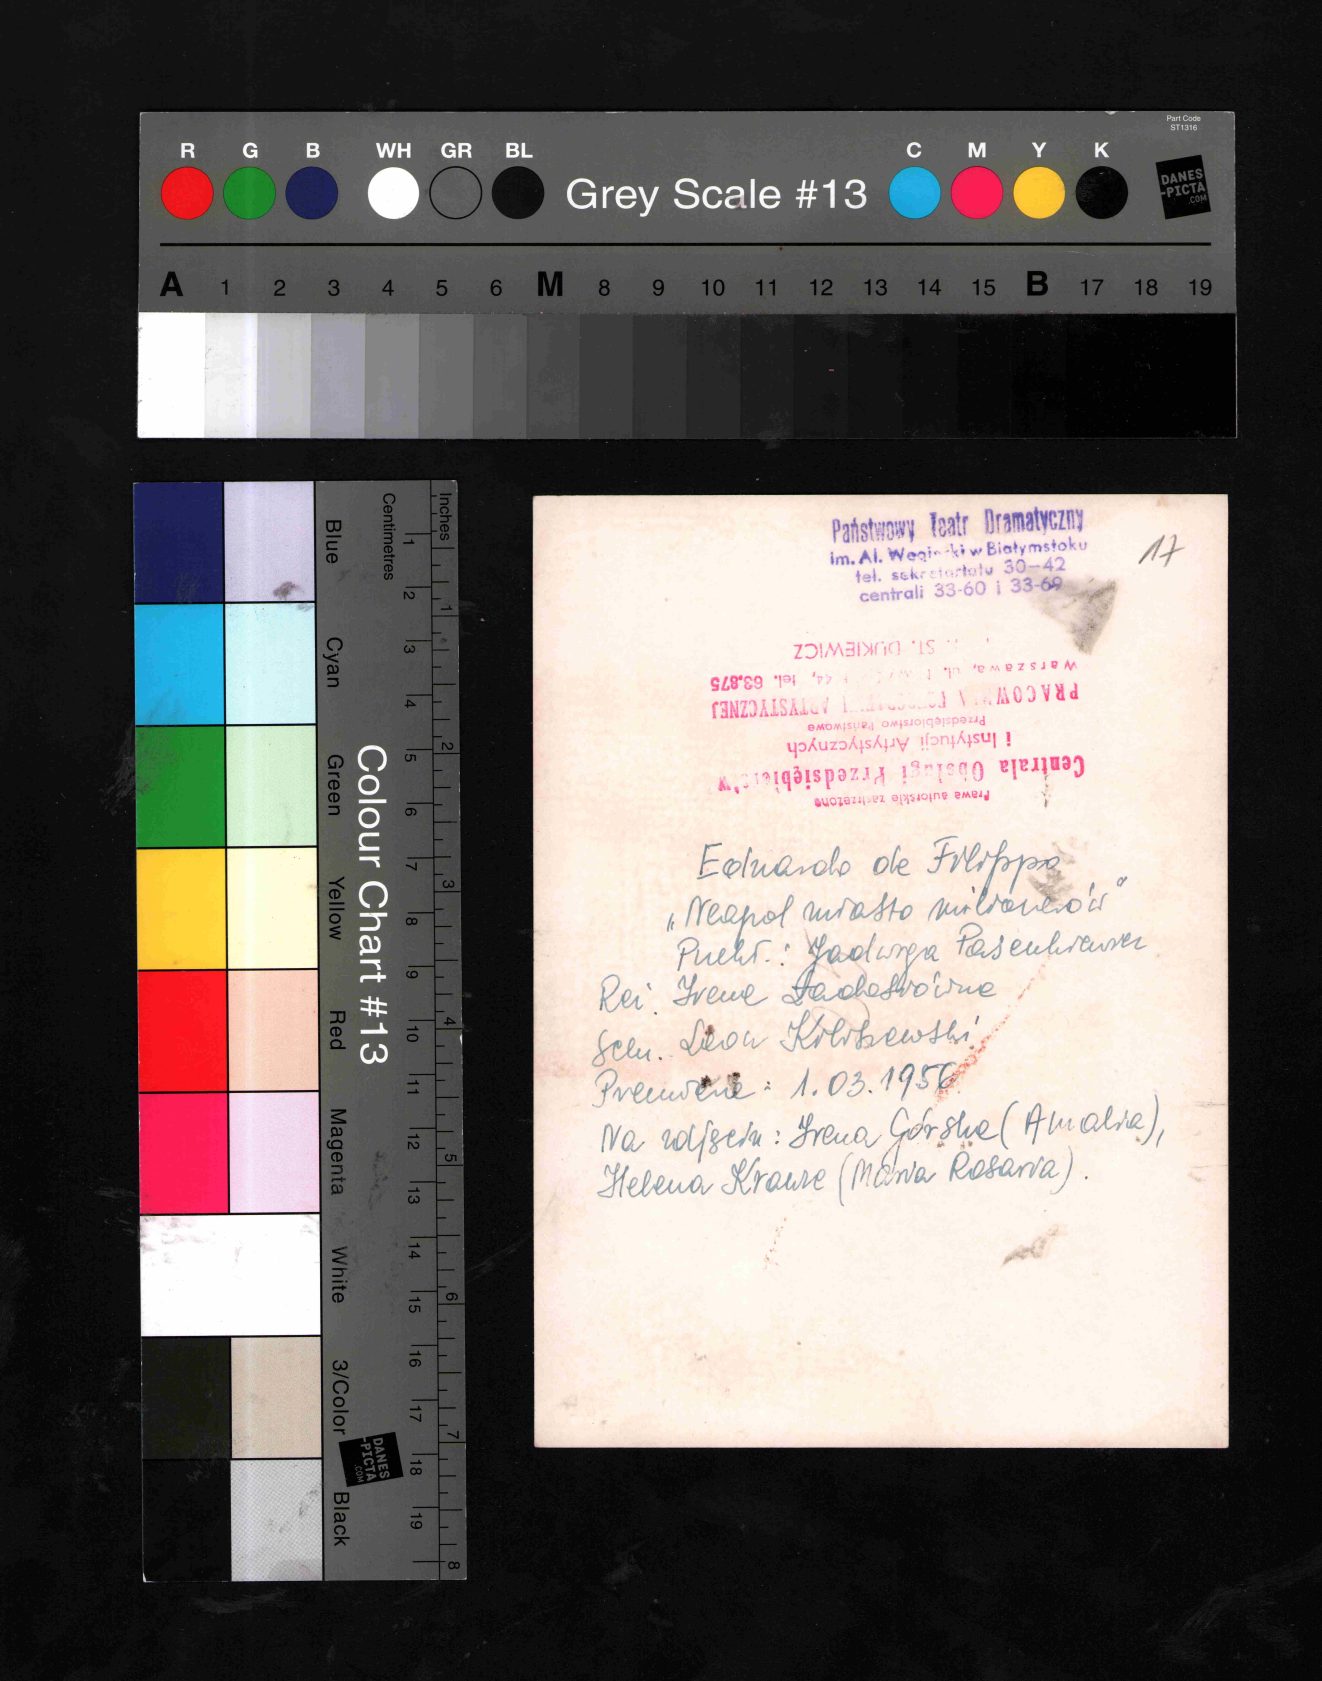 Part Code
ST1316
R G B WH GR BL Grey Scale #13 C M Y K
DANES
-PICTA
.COM
A 1 2 3 4 5 6 M 8 9 10 11 12 13 14 15 B 17 18 19
Colour Chart #13
Blue
Cyan
Green
Yellow
Red
Magenta
White
3/Color
Black
Centimetres
1 2 3 4 5 6 7 8 9 10 11 12 13 14 15 16 17 18 19
Inches
1 2 3 4 5 6 7 8
DANES
-PICTA
.COM
Państwowy Teatr Dramatyczny
im. Al. w Białymstoku
tel. sekretariatu 30-42
centrali 33-60 i 33-69
17
Prawa autorskie zastrzeżone
Centrala Obsługi Przedsiębiorstw
i Instytucji Artystycznych
Przedsiębiorstwo Państwowe
PRACOWNIA FOTOGRAFII ARTYSTYCZNEJ
Warszawa, ul. 44, tel. 63.875
ST. DUKIEWICZ
Eduardo de Filippo
„Neapol miasto milionerów"
Przekł.: Jadwiga Pasenkiewicz
Reż. Irena
Scen. Leon Kiliszewski
Premiera: 1.03.1956
Na zdjęciu: Irena Górska (Amalia),
Helena Krauze (Maria Rosaria).